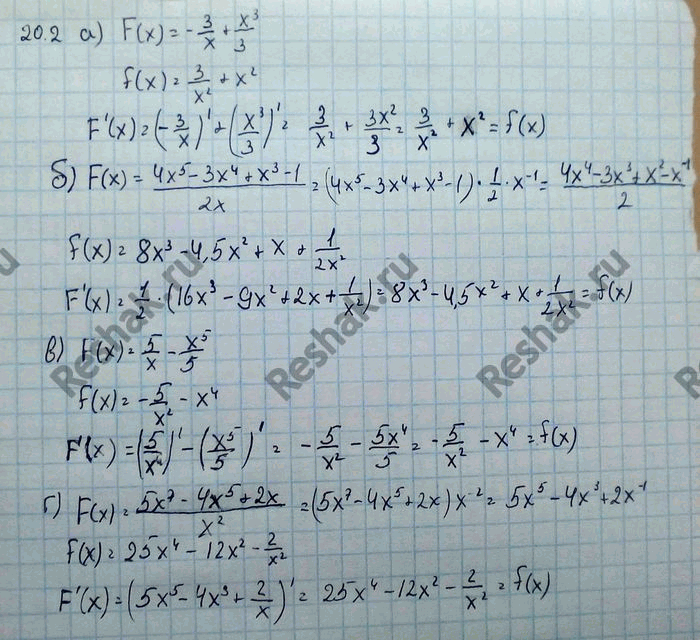 20.2 а) F(x) = -3/x + x³/3
f(x) = 3/x² + x²
F'(x) = (-3/x)' + (x³/3)' = 3/x² + 3x²/3 = 3/x² + x² = f(x)
б) F(x) = (4x⁵-3x⁴+x³-1)/2x = (4x⁵-3x⁴+x³-1)·1/2·x⁻¹ = (4x⁴-3x³+x²-x⁻¹)/2
f(x) = 8x³-4,5x²+x+1/2x²
F'(x) = 1/2·(16x³-9x²+2x+1/x²) = 8x³-4,5x²+x+1/2x² = f(x)
в) F(x) = 5/x - x⁵/5
f(x) = -5/x² - x⁴
F'(x) = (5/x⁴)' - (x⁵/5)' = -5/x² - 5x⁴/5 = -5/x² - x⁴ = f(x)
г) F(x) = (5x⁷-4x⁵+2x)/x² = (5x⁷-4x⁵+2x)x⁻² = 5x⁵-4x³+2x⁻¹
f(x) = 25x⁴-12x²-2/x²
F'(x) = (5x⁵-4x³+2/x)' = 25x⁴-12x²-2/x² = f(x)
Reshak.ru
Reshak.ru
Reshak.ru